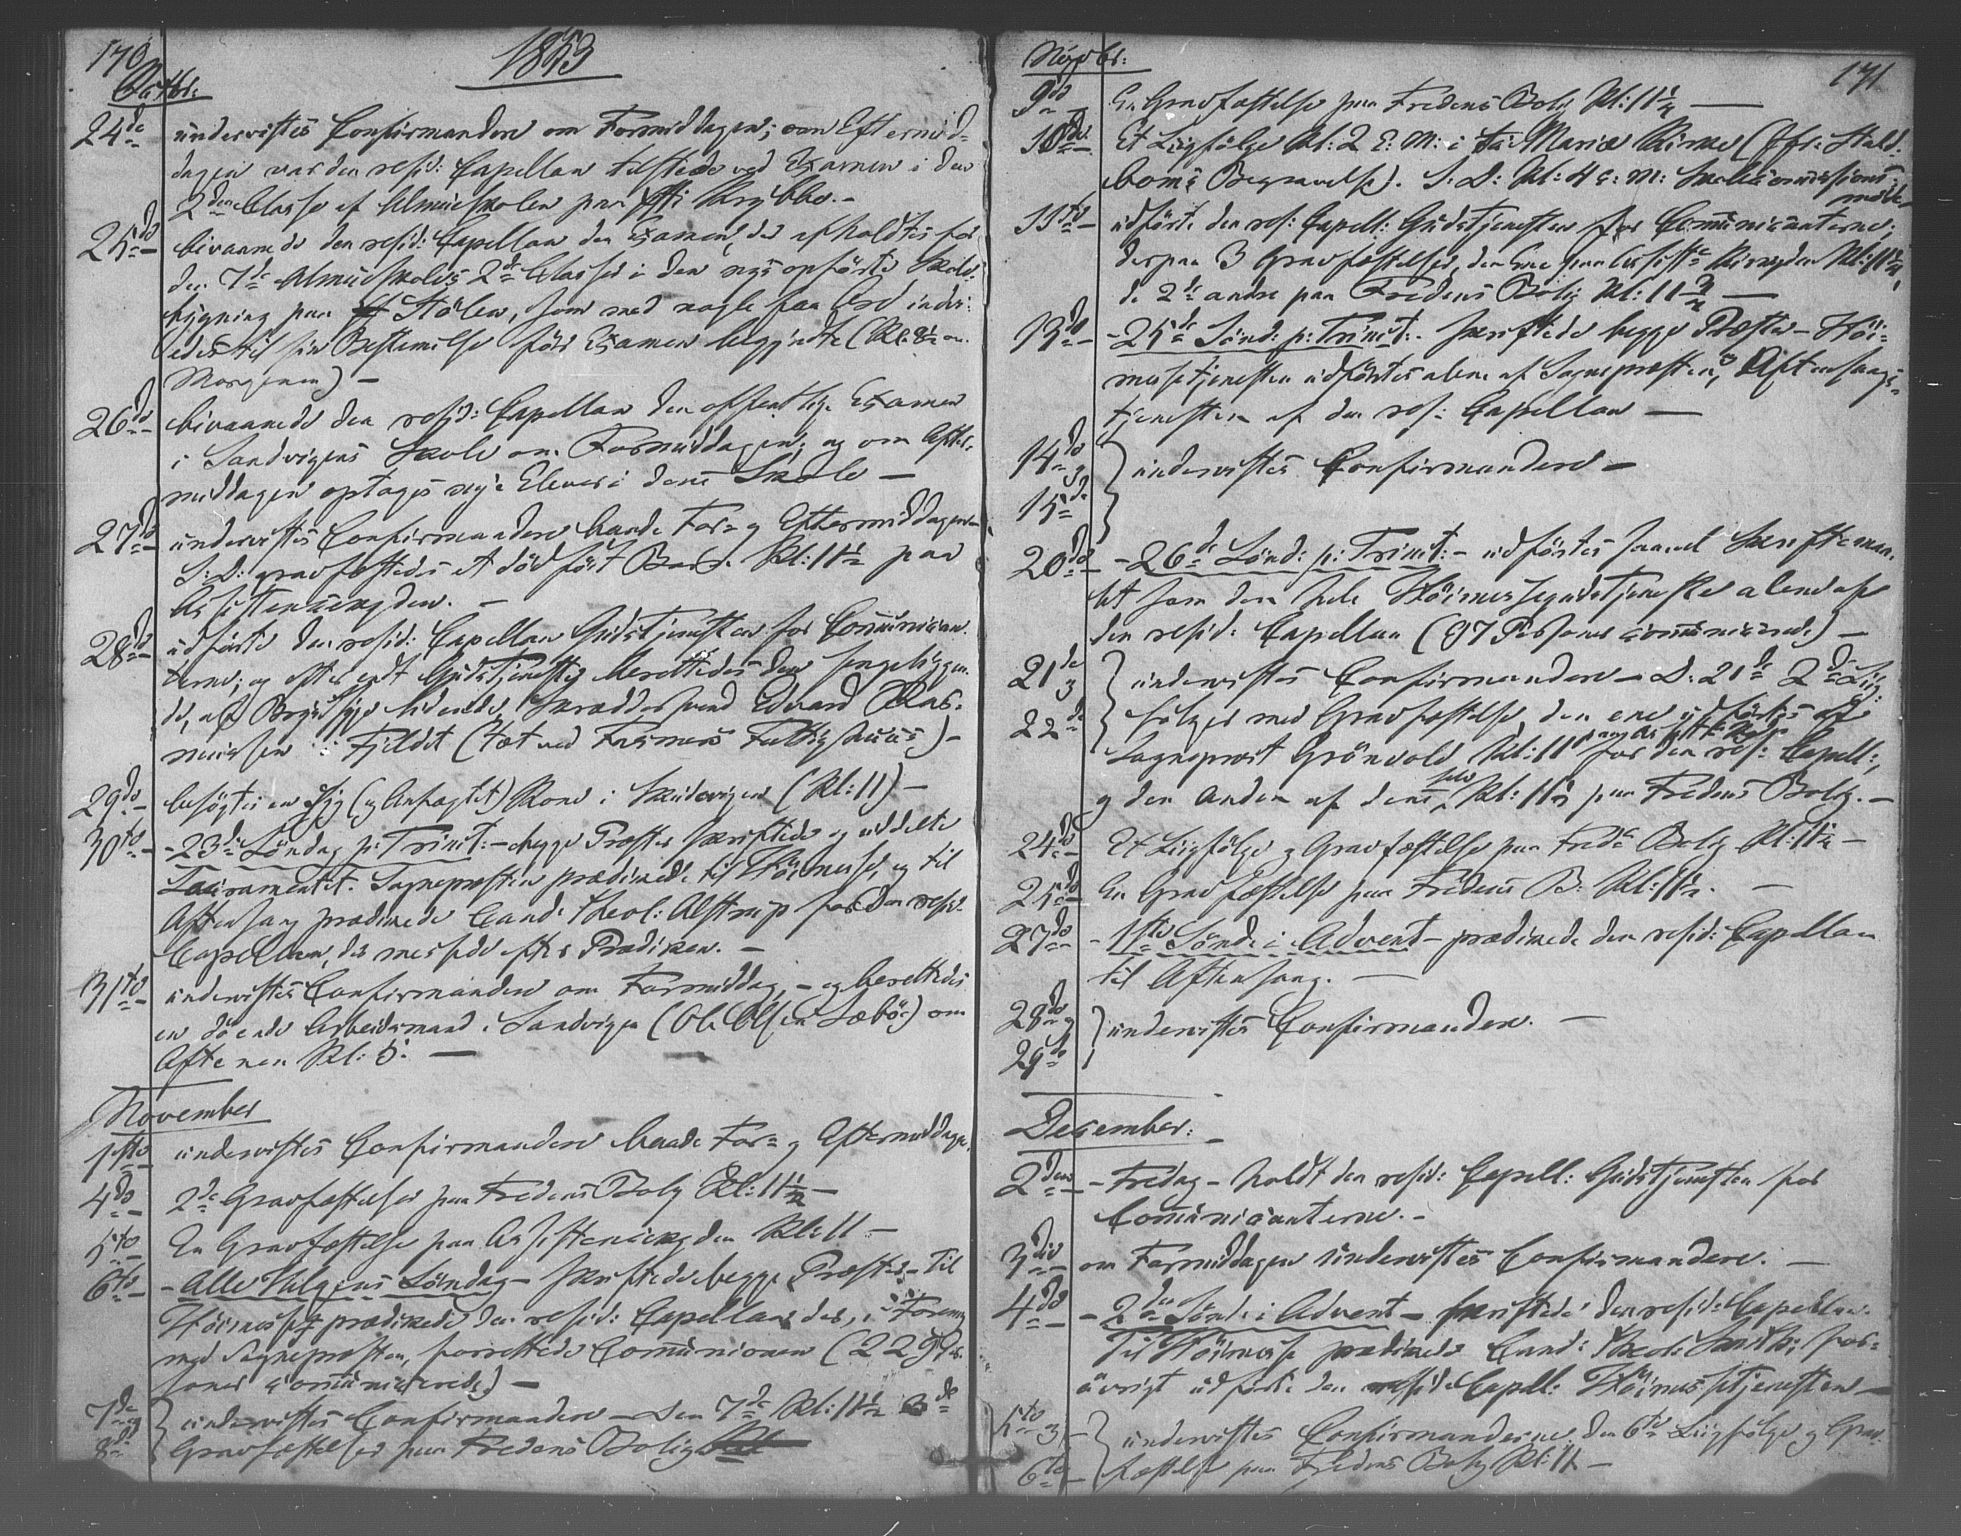 170
1853
Octbr:
24de underviistes Confirmanderne om Formiddagen; om Eftermid-
dagen var den resid: Capellan tilstede ved Examen i den
2den Classe af Almueskolen paa Krybbe.-
25de bivaanede den resid: Capellan den Examen, der afholdtes for
den 7de Almueskoles 2de Classer i den nys opførte Skole-
bygning paa Stølen, som med nogle faa Ord indvi-
edes til sin Bestemmelse før Examen begyndte (Kl: 8½ om
Morgenen) -
26de bivaanede den resid: Capellan den offentlige Examen
i Sandvigens Skole om Formiddagen; og om Efter-
middagen optoges nye Elever i denne Skole -
27de underviistes Confirmanderne baade For- og Eftermiddagen
S: D: gravfæstedes et dødført Barn Kl: 11½ paa
Assistenskirkegden. -
28de udførte den resid: Capellan Gudstjenesten for Communican-
terne; og efter endt Gudstjeneste berettedes den sengeliggen-
de, af Brystsyge lidende, Skræddersvend Edvard Ras-
mussen i Fjeldet (tæt ved Fattighuus) -
29de besøgtes en syg (og anfægtet) Kone i Skudevigen (Kl: 11) -
30te - 23de Søndag p: Trinit: - begge Præster skriftede og uddelte
Sacramentet. Sognepræsten prædikede til Høimesse, og til
Aftensang prædikede Cand: theol: Alstrup for den resid:
Capellan, der messede efter Prædiken. -
31te underviistes Confirmanderne om Formiddag, - og berettedes
en døende Arbeidsmand i Sandvigen (Ole Olsen Sæbø) om
Aftenen Kl: 5. -
November
1ste underviistes Confirmanderne baade For- og Eftermiddagen.
4de 2de Gravfæstelser paa Fredens Bolig Kl: 11½ -
5te En Gravfæstelse paa Assistenskirkegden Kl: 11 -
6te - Alle Helgens Søndag - skriftede begge Præster - til
Høimesse prædikede den resid: Capellan der, i Forening
med Sognepræsten, forrettede Communionen (229 Per-
soner communicerede) -
7de og underviistes Confirmanderne - den 7de Kl: 11½ 3de
8de Gravfæstelser paa Fredens Bolig
171
Novbr:
9de En Gravfæstelse paa Fredens Bolig Kl: 11¼ -
10de Et Liigfølge Kl: 2 E: M: i Sta Mariæ Kirke (Stald-
boms Begravelse). S: D: Kl: 4 E: M: Skolecommissions-
møde
11te udførte den res: Capell: Gudstjenesten for Communicanterne,
derpaa 3 Gravfæstelser, den Ene paa Assistts Kirkegden Kl: 11¼,
de 2de andre paa Fredens Bolig Kl: 11¾ -
13de - 25de Sønd: p: Trinit: - skriftede begge Præster - Høi-
messetjenesten udførtes alene af Sognepræsten, Aftensangs-
tjenesten af den res: Capellan -
14de og underviistes Confirmanderne -
15de
20de - 26de Sønd: p: Trinit: - udførtes saavel Skriftemaa-
let som den hele Høimessegudstjeneste alene af
den resid: Capellan (97 Personer communicerede) -
21de og underviistes Confirmanderne - D: 21de 2de Liig-
22de følger med Gravfæstelse, den ene udførtes af
Sognepræst Grønvold Kl: 11 for den res: Capell:,
og den Anden af denne selv Kl: 11½ paa Fredens Bolig. -
24de Et Liigfølge og Gravfæstelse paa Freds Bolig Kl: 11½ -
25de En Gravfæstelse paa Fredens B: Kl: 11½. -
27de - 1ste Sønd: i Advent - prædikede den resid: Capellan
til Aftensang. -
28de og underviistes Confirmanderne. -
29de
December:
2den - Fredag - holdt den resid: Capell: Gudstjenesten for
Communicanterne. -
3die om Formiddagen underviistes Confirmanderne. -
4de - 2den Sønd: i Advent - skriftede den resid: Capellan.
Til Høimesse prædikede Cand: theol: Smith; for-
øvrigt udførte den resid: Capell: Høimessetjenesten -
5te og underviistes Confirmanderne, den 6te Liigfølge og Grav-
6te fæstelse paa Fredens Bolig Kl: 11 -